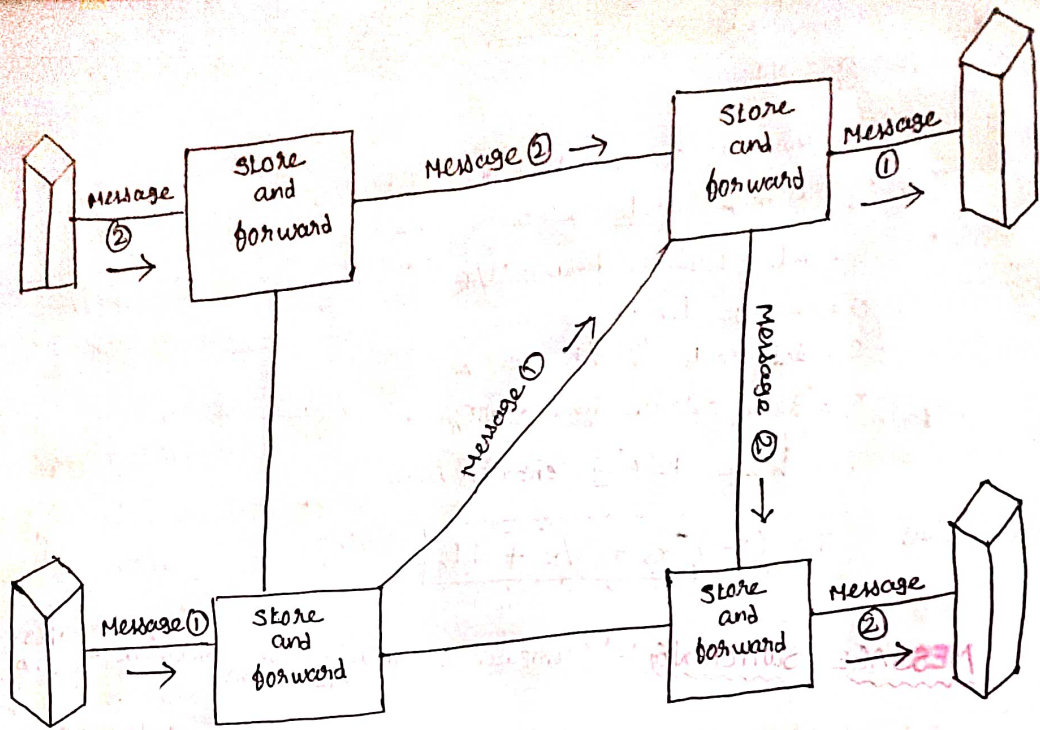 Store
and
forward
Message
①
Store
and
forward
Message ②
Message
②
Message ①
Message
②
Store
and
forward
Message
②
Store
and
forward
Message ①